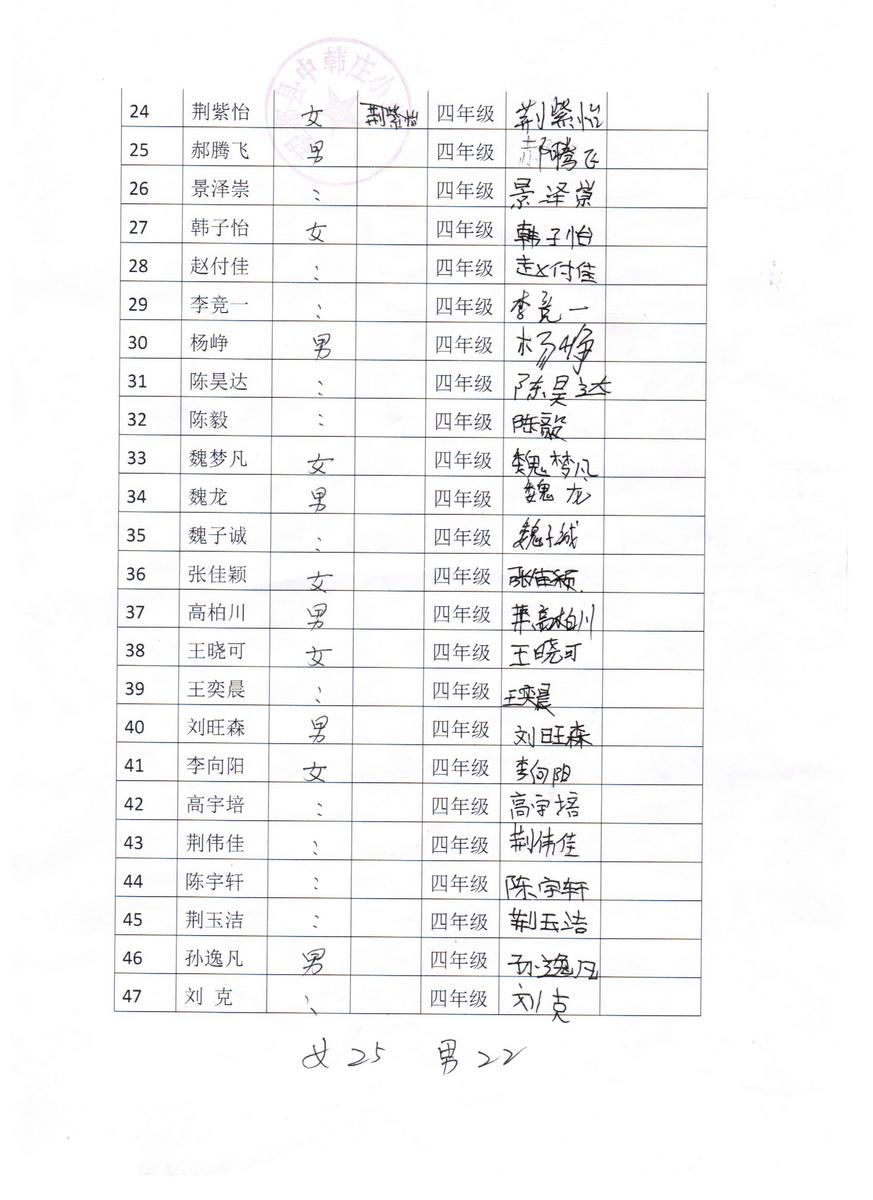 县中韩庄小
24 荆紫怡 女 荆紫怡 四年级 荆紫怡
25 郝腾飞 男 四年级 郝腾飞
26 景泽崇 : 四年级 景泽崇
27 韩子怡 女 四年级 韩子怡
28 赵付佳 : 四年级 赵付佳
29 李竞一 : 四年级 李竟一
30 杨峥 男 四年级 杨峥
31 陈昊达 : 四年级 陈昊达
32 陈毅 : 四年级 陈毅
33 魏梦凡 女 四年级 魏梦凡
34 魏龙 男 四年级 魏龙
35 魏子诚 : 四年级 魏子诚
36 张佳颖 女 四年级 张佳颖
37 高柏川 男 四年级 高柏川
38 王晓可 女 四年级 王晓可
39 王奕晨 : 四年级 王奕晨
40 刘旺森 男 四年级 刘旺森
41 李向阳 女 四年级 李向阳
42 高宇培 : 四年级 高宇培
43 荆伟佳 : 四年级 荆伟佳
44 陈宇轩 : 四年级 陈宇轩
45 荆玉洁 : 四年级 荆玉洁
46 孙逸凡 男 四年级 孙逸凡
47 刘 克 : 四年级 刘克
女 25 男 22